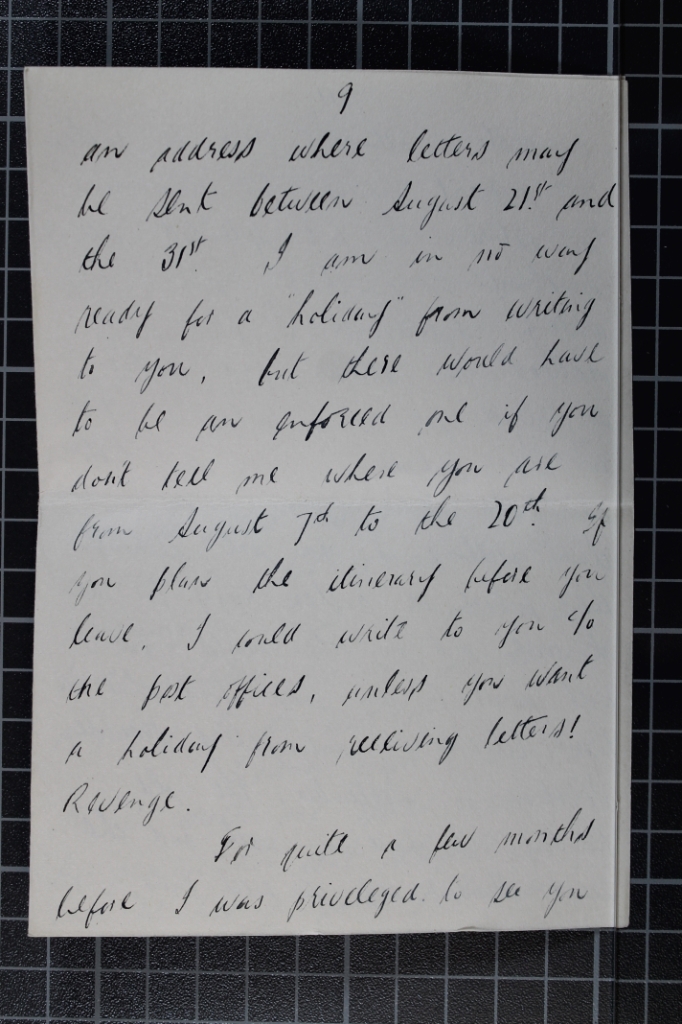 9
an address where letters may
be sent between August 21st and
the 31st. I am in no way
ready for a "holiday" from writing
to you, but there would have
to be an enforced one if you
don't tell me where you are
from August 7th to the 20th. If
you plan the itinerary before you
leave, I could write to you c/o
the post offices, unless you want
a holiday from receiving letters!
Revenge.
For quite a few months
before I was priveleged to see you